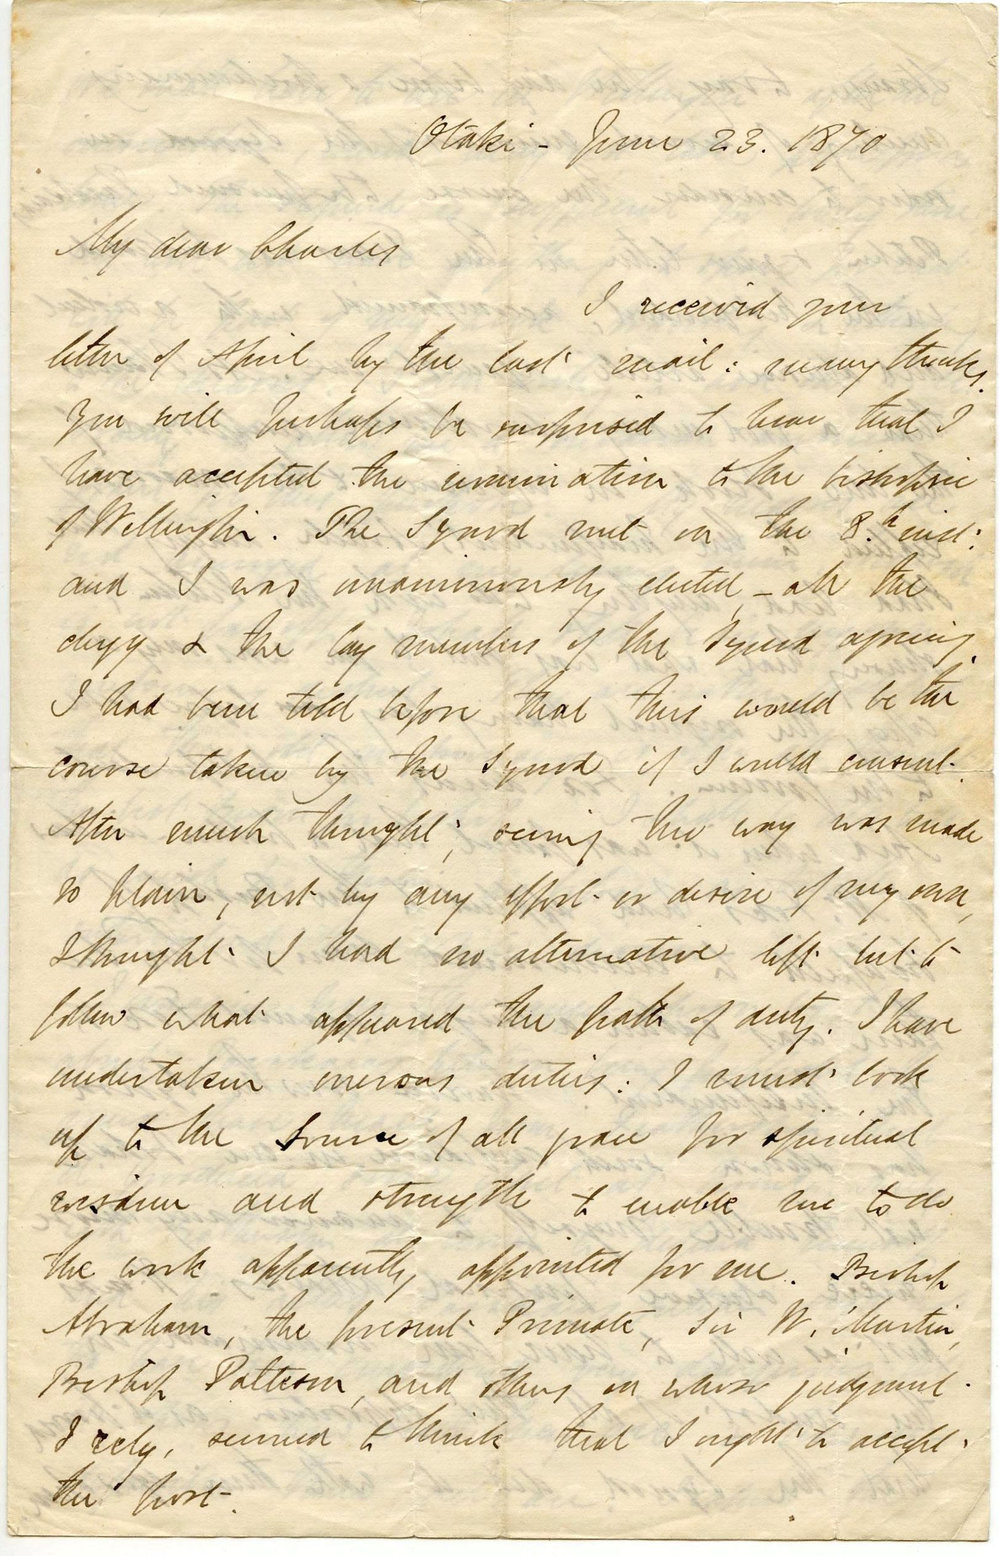 Otaki - June 23. 1870
My dear Charles
I received your
letter of April by the last mail: many thanks.
You will perhaps be surprised to hear that I
have accepted the nomination to the bishopric
of Wellington. The Synod met on the 8.th inst:
and I was unanimously elected, - all the
clergy & the lay members of the Synod agreeing.
I had been told before that this would be the
course taken by the Synod if I would consent.
After much thought, seeing the way was made
so plain, not by any effort or desire of my own,
I thought I had no alternative left but to
follow what appeared the path of duty. I have
undertaken onerous duties: I must look
up to the Source of all grace for spiritual
wisdom and strength to enable me to do
the work apparently appointed for me. Bishop
Abraham, the present Primate, Sir W. Martin,
Bishop Patteson, and others on whose judgment
I rely, seemed to think that I ought to accept
the post.